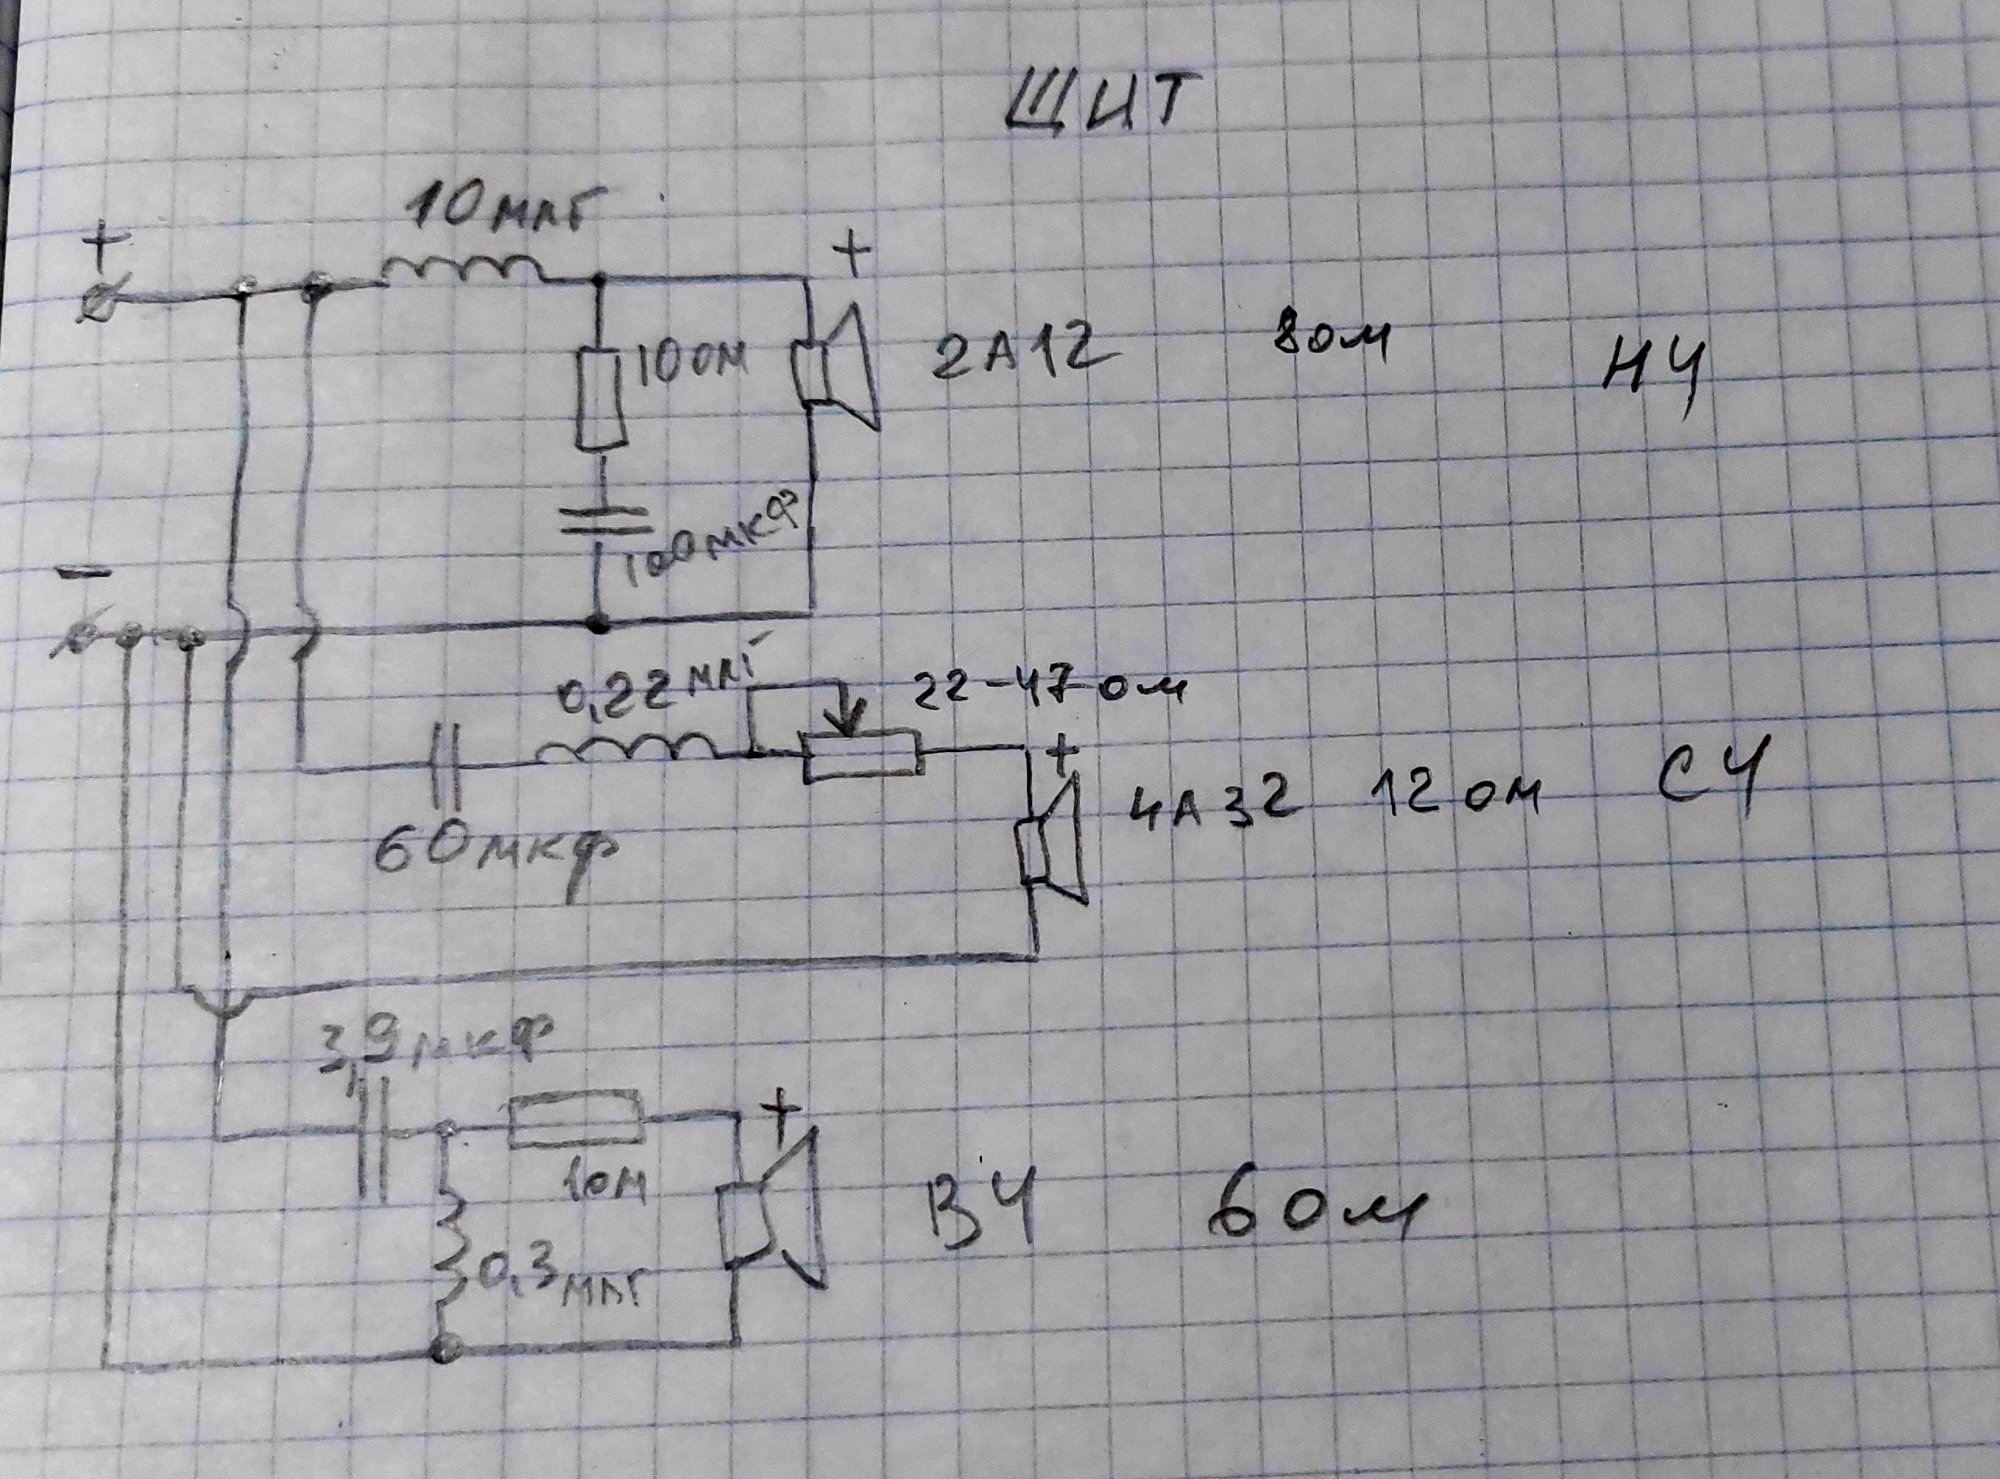 ЩИТ
10 млг
+
+
10 ом
2А12
8 ом
НЧ
100 мкф
-
0,22 млг
22-47 ом
+
60 мкф
4А32
12 ом
СЧ
3,9 мкф
+
1 ом
ВЧ
6 ом
0,3 млг